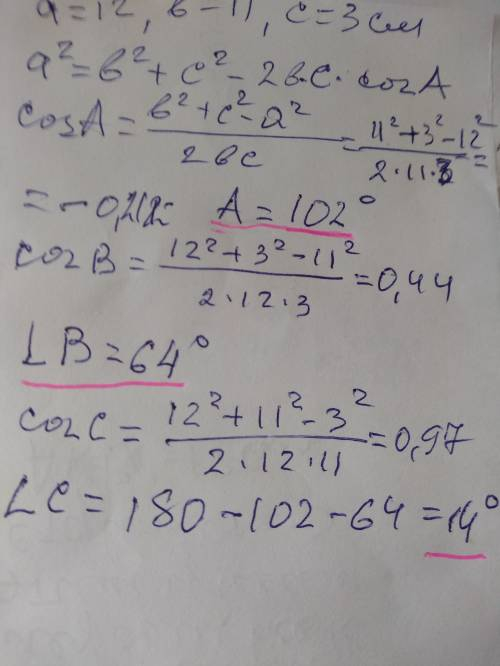 a=12, в=11, c=3см
a²=в²+c²-2вc·cosA
cosA=(в²+c²-a²)/(2вc)=(11²+3²-12²)/(2·11·3)=
=-0,212 A=102°
cosB=(12²+3²-11²)/(2·12·3)=0,44
∠B=64°
cosC=(12²+11²-3²)/(2·12·11)=0,97
∠C=180-102-64=14°